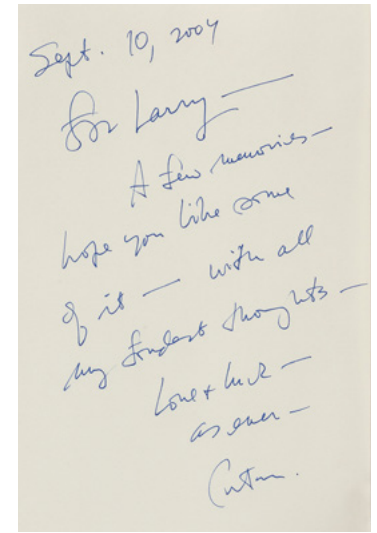 Sept. 10, 2004
For Larry —
A few memories —
hope you like some
of it — with all
my fondest thoughts —
Love + luck —
as ever —